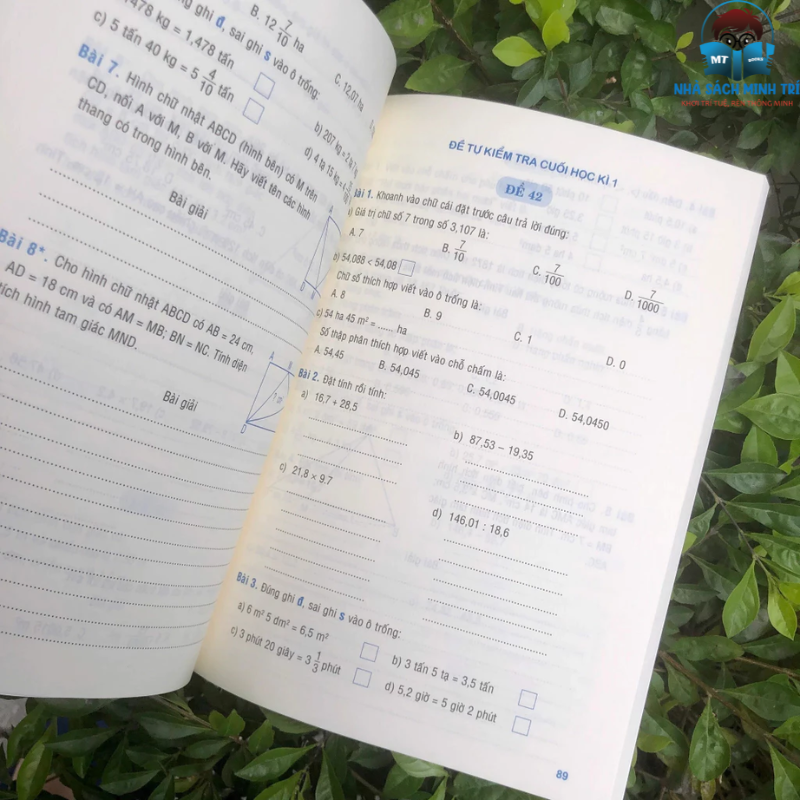 MT
BOOKS
NHÀ SÁCH MINH TRÍ
B. 12 7/10 ha
C. 12,07 ha
ghi đ, sai ghi s vào ô trống:
1,478 kg = 1,478 tấn
b) 207 kg = 2
c) 5 tấn 40 kg = 5 4/10 tấn
d) 4 tạ 15 kg = 4
Bài 7. Hình chữ nhật ABCD (hình bên) có M trên
CD, nối A với M, B với M. Hãy viết tên các hình
thang có trong hình bên.
Bài giải
Bài 8*. Cho hình chữ nhật ABCD có AB = 24 cm,
AD = 18 cm và có AM = MB; BN = NC. Tính diện
tích hình tam giác MND.
A
Bài giải
ĐỀ TỰ KIỂM TRA CUỐI HỌC KÌ 1
ĐỀ 42
Bài 1. Khoanh vào chữ cái đặt trước câu trả lời đúng:
a) Giá trị chữ số 7 trong số 3,107 là:
A. 7 B. 7/10 C. 7/100 D. 7/1000
b) 54,088 < 54,08
Chữ số thích hợp viết vào ô trống là:
A. 8 B. 9 C. 1 D. 0
c) 54 ha 45 m² = ...... ha
Số thập phân thích hợp viết vào chỗ chấm là:
A. 54,45 B. 54,045 C. 54,0045 D. 54,0450
Bài 2. Đặt tính rồi tính:
a) 16,7 + 28,5 b) 87,53 – 19,35
c) 21,8 × 9,7 d) 146,01 : 18,6
Bài 3. Đúng ghi đ, sai ghi s vào ô trống:
a) 6 m² 5 dm² = 6,5 m² b) 3 tấn 5 tạ = 3,5 tấn
c) 3 phút 20 giây = 3 1/3 phút d) 5,2 giờ = 5 giờ 2 phút
89